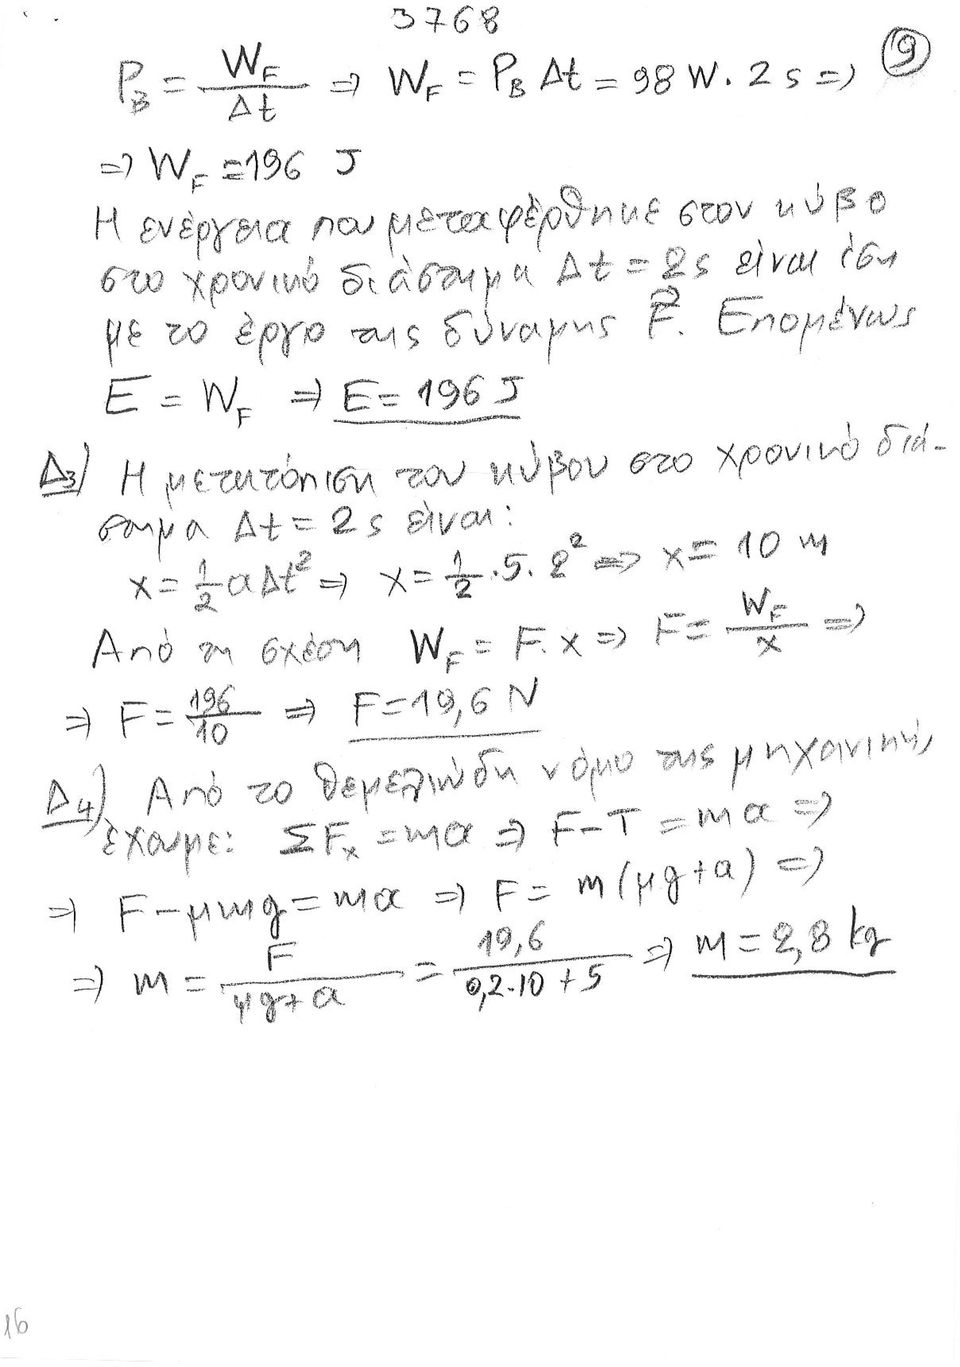 3768
9
P_B = W_F / Δt ⇒ W_F = P_B Δt = 98 W · 2 s ⇒
⇒ W_F = 196 J
Η ενέργεια που μεταφέρθηκε στον κύβο
στο χρονικό διάστημα Δt = 2s είναι ίση
με το έργο της δύναμης F⃗. Επομένως
E = W_F ⇒ E = 196 J
Δ3) Η μετατόπιση του κύβου στο χρονικό διά-
στημα Δt = 2 s είναι:
x = 1/2 a Δt² ⇒ x = 1/2 · 5 · 2² ⇒ x = 10 m
Από τη σχέση W_F = F·x ⇒ F = W_F / x ⇒
⇒ F = 196/10 ⇒ F = 19,6 N
Δ4) Από το θεμελιώδη νόμο της μηχανικής,
έχουμε: ΣF_x = ma ⇒ F - T = ma ⇒
⇒ F - μmg = ma ⇒ F = m(μg + a) ⇒
⇒ m = F / μg + a = 19,6 / 0,2·10 + 5 ⇒ m = 2,8 kg
16